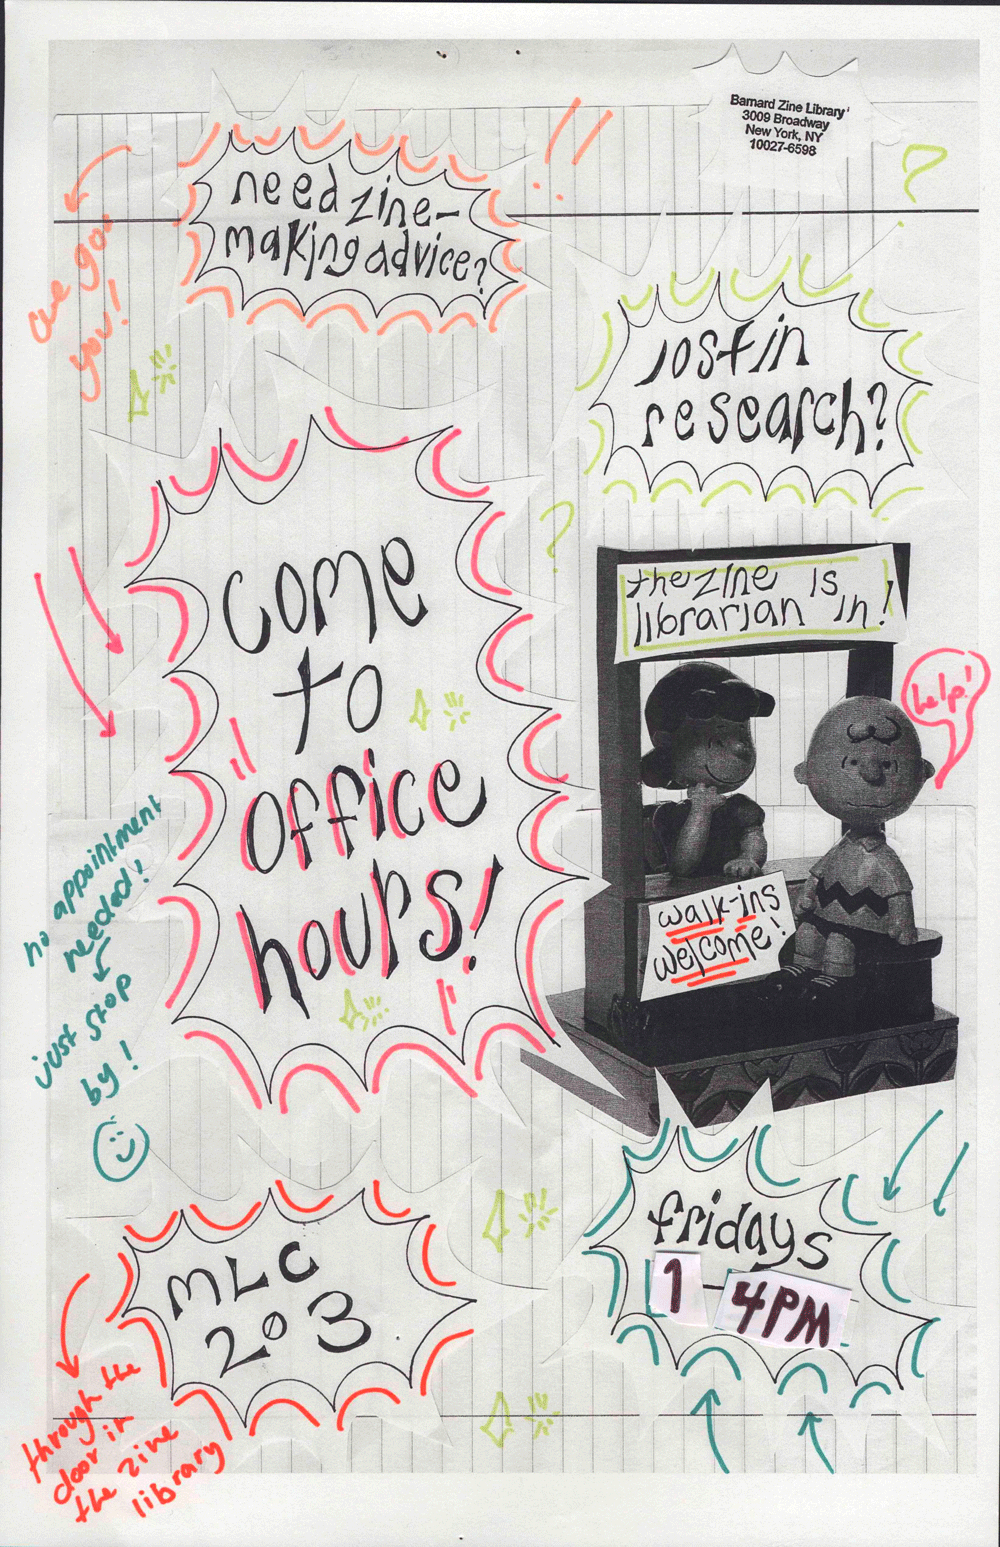 Barnard Zine Library
3009 Broadway
New York, NY
10027-6598
need zine-
making advice?
!!
?
we got
you!
lost in
research?
?
come
to
office
hours!
the zine is
librarian in!
help!
walk-ins
welcome!
no appointment
needed!
just stop
by!
MLC
203
fridays
1-4PM
through the
door in
the zine
library